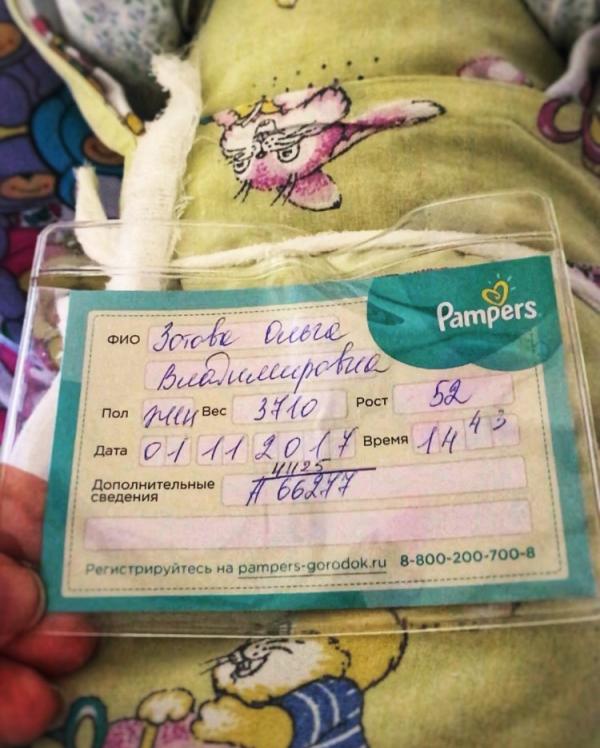 Pampers
ФИО Зотова Ольга
Владимировна
Пол жен Вес 3710 Рост 52
Дата 01 11 2017 Время 14 43
4125
Дополнительные сведения А 66277
Регистрируйтесь на pampers-gorodok.ru 8-800-200-700-8